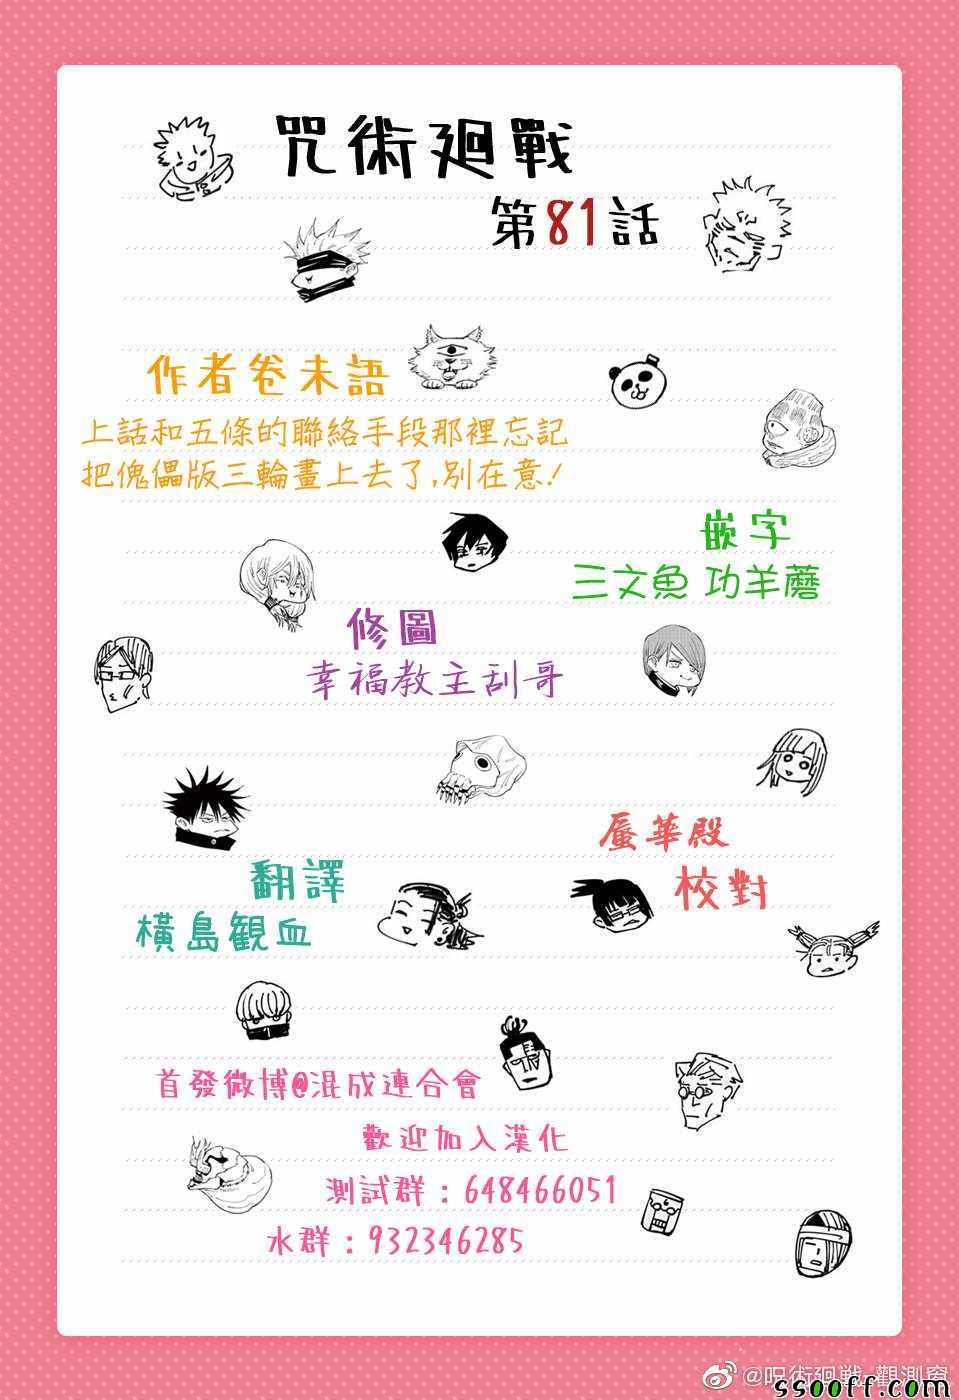 咒術廻戰
第81話
作者卷末語
上話和五條的聯絡手段那裡忘記
把傀儡版三輪畫上去了,別在意!
嵌字
三文魚 功羊蘑
修圖
幸福教主刮哥
蜃華殿
校對
翻譯
橫島観血
首發微博@混成連合會
歡迎加入漢化
測試群：648466051
水群：932346285
@呪術廻戦_觀測窗
ssooff.com